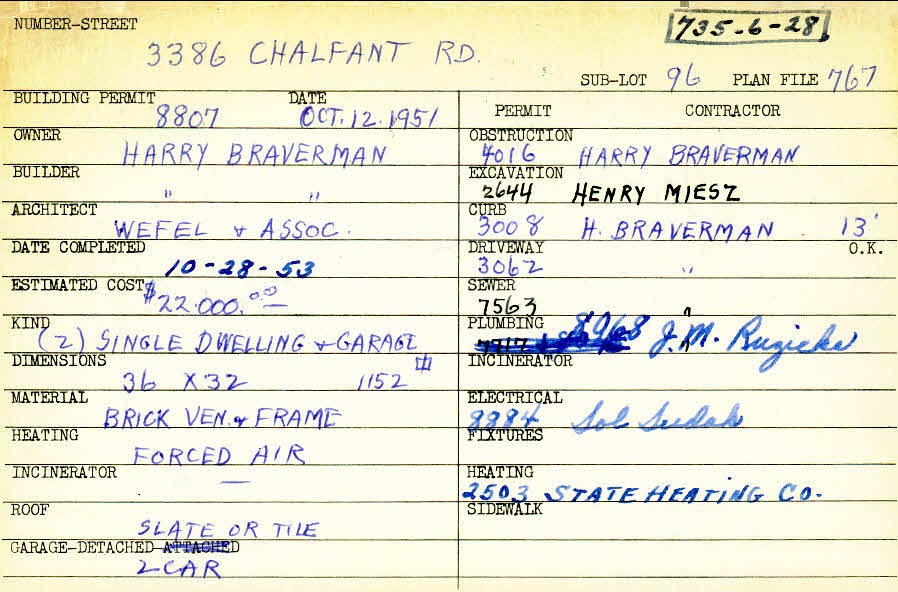 NUMBER-STREET
735-6-28
3386 CHALFANT RD.
SUB-LOT 96 PLAN FILE 767
BUILDING PERMIT DATE
8807 OCT. 12. 1951
OWNER
HARRY BRAVERMAN
BUILDER
" "
ARCHITECT
WEFEL & ASSOC.
DATE COMPLETED
10-28-53
ESTIMATED COST
$22.000.00
KIND
(2) SINGLE DWELLING & GARAGE
DIMENSIONS
36 X 32 1152
MATERIAL
BRICK VEN. & FRAME
HEATING
FORCED AIR
INCINERATOR
—
ROOF
SLATE OR TILE
GARAGE-DETACHED-ATTACHED
2 CAR
PERMIT CONTRACTOR
OBSTRUCTION
4016 HARRY BRAVERMAN
EXCAVATION
2644 HENRY MIESZ
CURB
3008 H. BRAVERMAN 13'
DRIVEWAY O.K.
3062 "
SEWER
7563 "
PLUMBING
8968 J. M. Ruzicka
INCINERATOR
ELECTRICAL
8884 Sol Sudak
FIXTURES
HEATING
2503 STATE HEATING CO.
SIDEWALK